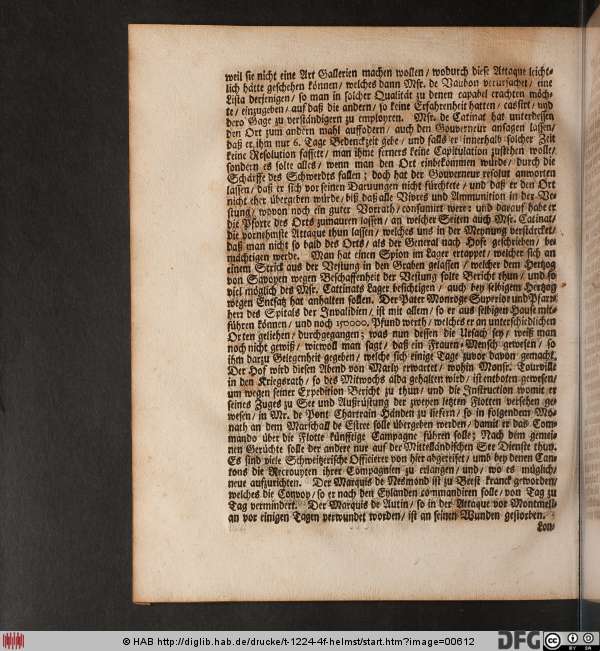 weil sie nicht eine Art Gallerien machen wollen / wodurch diese Attaque leicht-
lich hätte geschehen können / welches dann Msr. de Vaubon verursachet / eine
Lista derjenigen / so man in solcher Qualität zu denen capabel erachten möch-
te / einzugeben / auf daß die andern / so keine Erfahrenheit hatten / cassirt / und
dero Gage zu verständigern zu employren. Msr. de Catinat hat unterdessen
den Ort zum andern mahl auffodern / auch den Gouverneur ansagen lassen /
daß er ihm nur 6. Tage Bedenckzeit gebe / und falls er innerhalb solcher Zeit
keine Resolution fassete / man ihme ferners keine Capitulation zustehen wolle /
sondern es solte alles / wenn man den Ort einbekommen würde / durch die
Schärffe des Schwerdts fallen ; doch hat der Gouverneur resolut anworten
lassen / daß er sich vor seinen Dräuungen nicht fürchtete / und daß er den Ort
nicht eher übergeben würde / biß daß alle Vivres und Ammunition in der Ve-
stung / wovon noch ein guter Vorrath / consumirt were ; und darauf habe er
die Pforte des Orts zumauren lassen / an welcher Seiten auch Msr. Catinat /
die vornehmste Attaque thun lassen / welches uns in der Meynung verstärcket /
daß man nicht so bald des Orts / als der General nach Hofe geschrieben / be-
mächtigen werde. Man hat einen Spion im Lager ertappet / welcher sich an
einem Strick aus der Vestung in den Graben gelassen / welcher dem Hertzog
von Savoyen wegen Beschaffenheit der Vestung solte Bericht thun / und so
viel möglich des Msr. Cattinats Lager besichtigen / auch bey selbigem Hertzog
wegen Entsatz hat anhalten sollen. Der Pater Monroge Superior und Pfarr-
herr des Spitals der Invalidien / ist mit allem / so er aus selbigen Hause mit-
führen können / und noch 150000. Pfund werth / welches er an unterschiedlichen
Orten geliehen / durchgegangen ; was nun dessen die Ursach sey / weiß man
noch nicht gewiß / wiewoll man sagt / daß ein Frauen-Mensch gewesen / so
ihm darzu Gelegenheit gegeben / welche sich einige Tage zuvor davon gemacht.
Der Hof wird diesen Abend von Marly erwartet / wohin Monsr. Tourville
in den Kriegsrath / so des Mitwochs alda gehalten wird / ist entboten gewesen /
um wegen seiner Expedition Bericht zu thun / und die Instruction womit er
seines Zuges zu See und Außrüstung der zweyen letzten Flotten versehen ge-
wesen / in Mr. de Pont Chartrain Händen zu liefern / so in folgendem Mo-
nath an dem Marschall de Estree solle übergeben werden / damit er das Com-
mando über die Flotte künfftige Campagne führen solle ; Nach dem gemei-
nen Gerüchte solle der andere nur auf der Mittelländischen See Dienste thun.
Es sind viele Schweitzerische Officierer von hier abgereiset / umb bey denen Can-
tons die Recrouyten ihrer Compagnien zu erlangen / und / wo es müglich /
neue aufzurichten. Der Marquis de Nesmond ist zu Brest kranck geworden /
welches die Convoy / so er nach den Eylanden commandiren solle / von Tag zu
Tag vermindert. Der Marquis de Autin / so in der Attaque vor Montmeli-
an vor einigen Tagen verwundet worden / ist an seinen Wunden gestorben.
Lon-
© HAB http://diglib.hab.de/drucke/t-1224-4f-helmst/start.htm?image=00612
DFG
CC BY SA